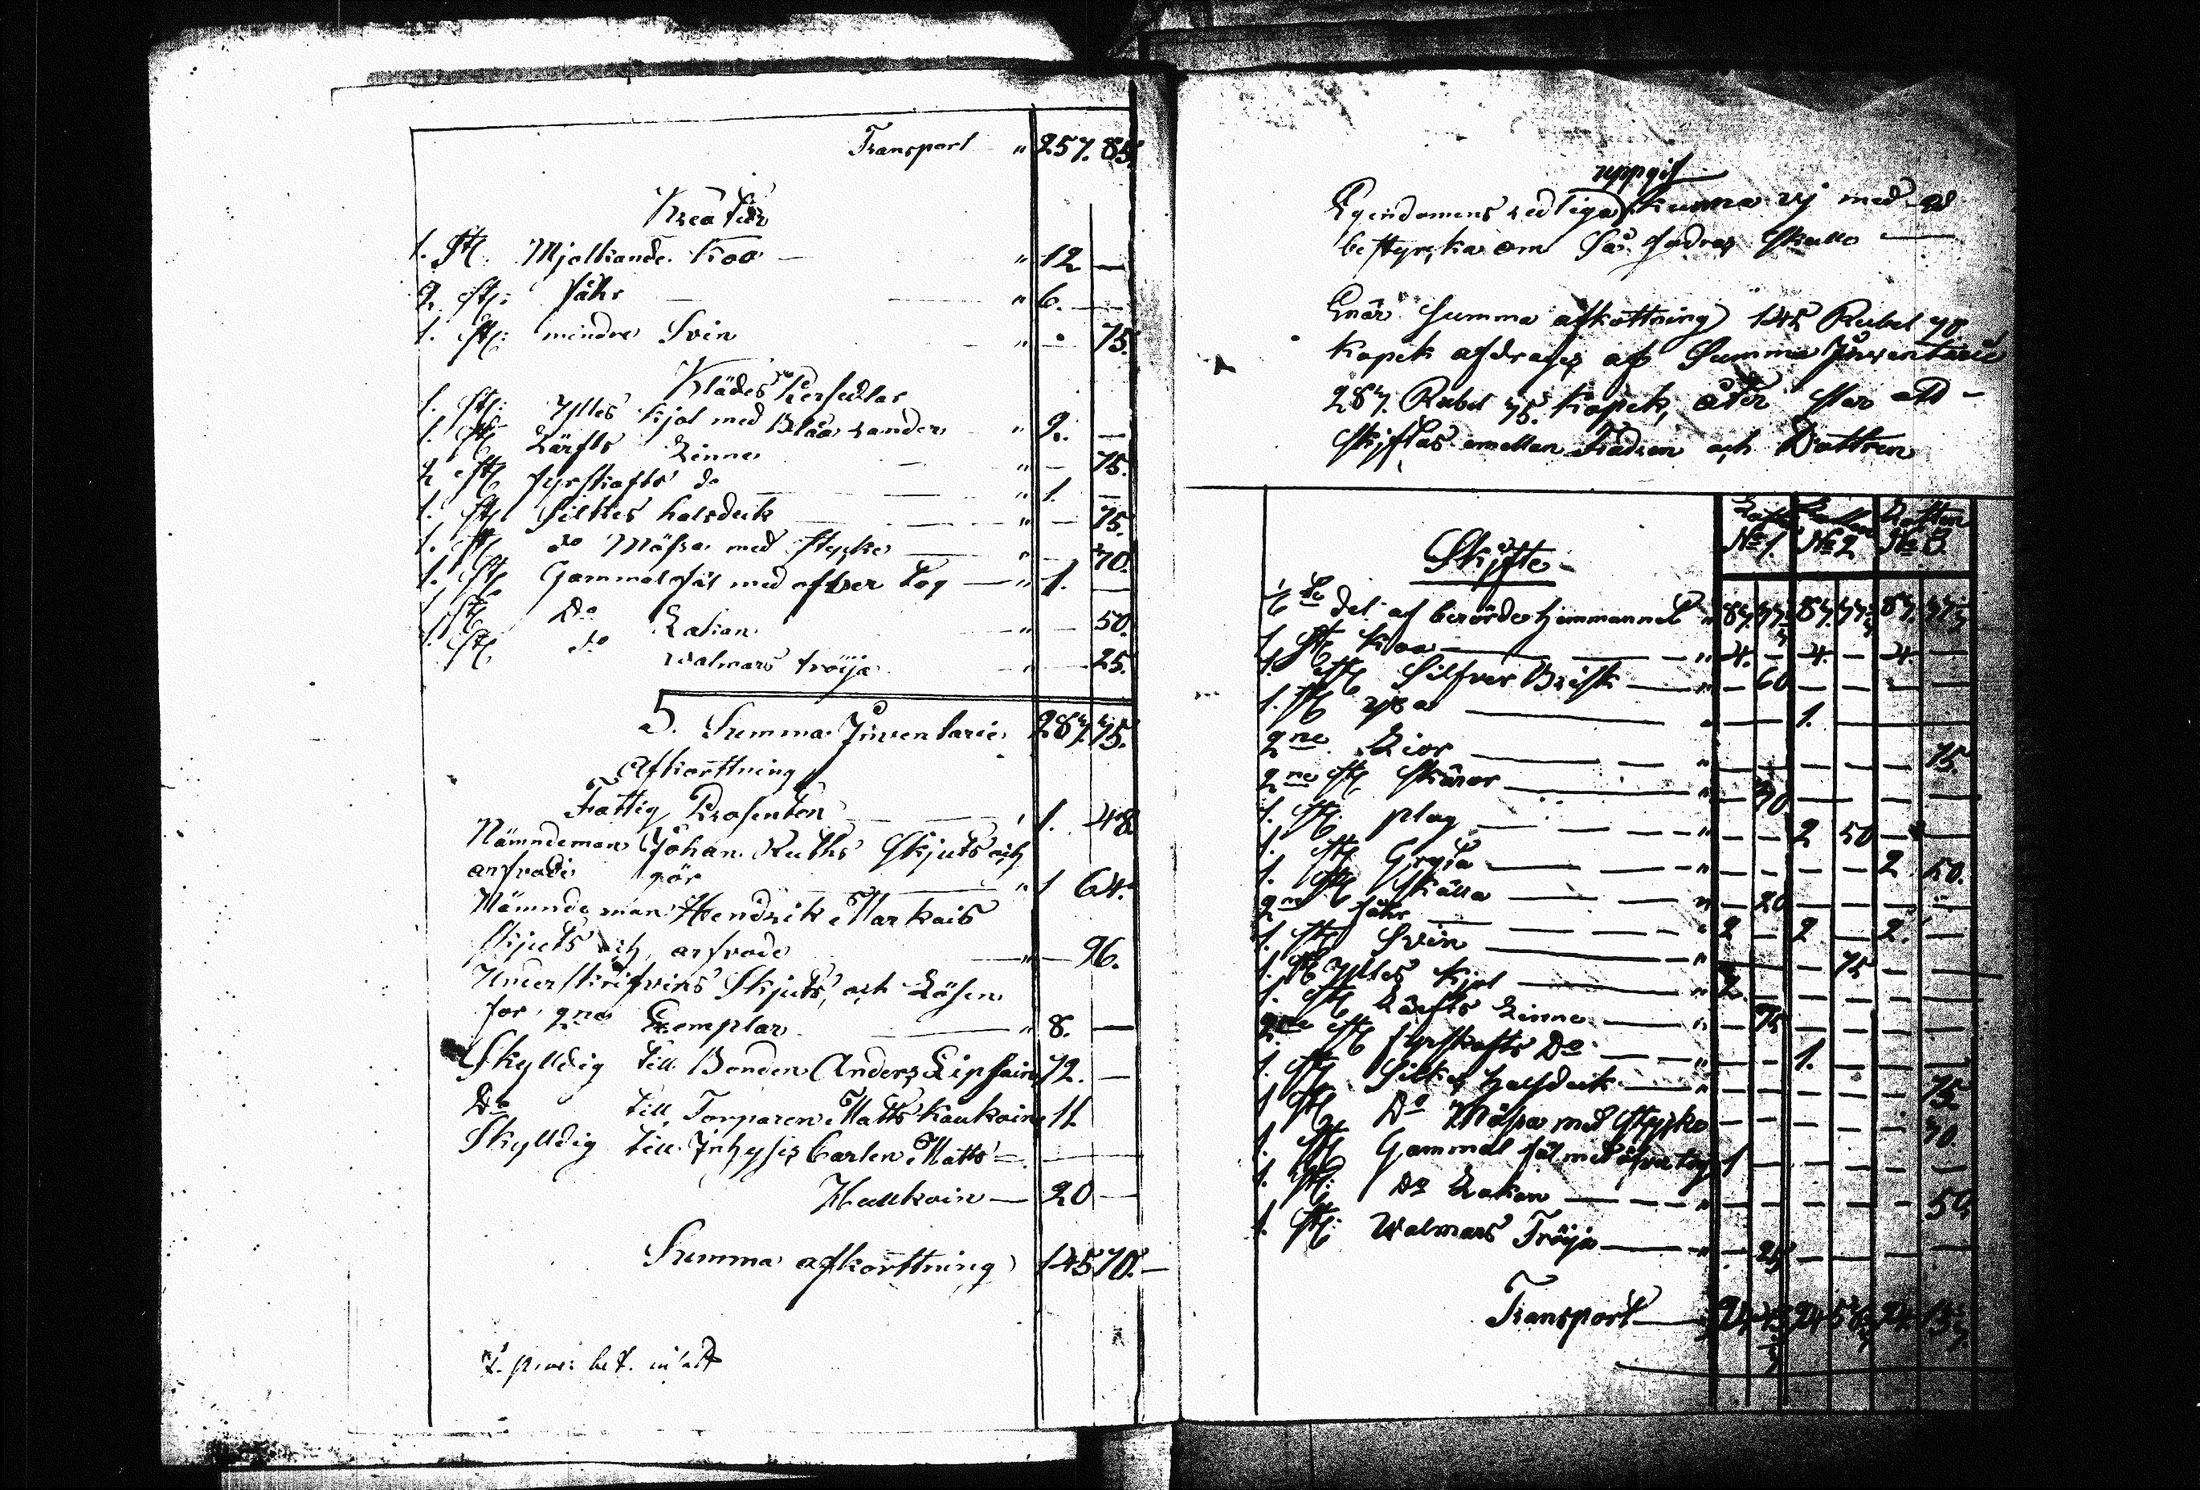 Transport " 257. 85.
Kreatur
1. St: Mjölkande Koo — " 12 —
2 St: fåhr — " 6. —
1. St: mindre Svin " — 75.
Klädes Persedlar
1. St: Ylles Kjol med Blåa rander " 2. —
1. St Lärfts Linne " — 75.
2 St fyrskafts do " 1. —
1. St Silkes halsduk " — 75.
1. St do Mössa med stycke " — 70.
1. St Gammal fäl med öfver tog — " 1. —
1. St Do Lakan " — 50.
1. St. do walmars tröija " — 25.
S. Summa Inventarie 287. 75.
Afkorttning
Fattig Procenten 1. 48
Nämndeman Johan Ruths Skjuts och
arfvode gör " 1 64.
Nämndeman Hendrik Markais
skjuts och arfvode " — 96.
Underskrifvins Skjuts, och Lösen
för 2ne Exemplar " 8. —
Skylldig till Bonden Anders Lipsain 72. —
Do till Torparen Matts Kaukain 11
Skylldig till Inhysis Carlen Matts —
Haukain — 20 —
Summa afkorttning 145 70. —
uppgift
Egendomens redliga kunna vj med ed
bestyrka om så fodras skulle —
Enär Summa afkottning 145 Rubel 70
Kopek afdrages af Summa Inventarie
287. Rubel 75. Kopek, åter står att —
skjftas emellan Fadren och Dottren
No 1. No 2 Dottren No 3.
Skjfte
del af berörde hemmannet " 87. 87. 87.
1. St Koo — " 4. — 4. — 4. —
1. St Silfver Brisk — " — 60 — — — —
1. St — " — — 1. — — —
2ne — " — — — — — 75.
2ne St Skäror — " — 70. — — — —
1. St. plog — " — — 2 50 — —
1. St Gryta — " — — — — 2 50.
1. St Skålla — " — 20 — — — —
2ne fåhr — " 2 — 2 — 2. —
1. St Svin — " — — — 75 — —
1. St Ylles Kjol — " 2 — — — — —
1. St Lärfts Linne — " — 75 — — — —
2ne St fyrskafts Do — " — — 1. — — —
1. St Silkes halsduk — " — — — — — 75
1 St Do Mössa med stycke — — — — — 70
1. St Gammal fäl med öfver tog 1 — — — — —
1. St: Do Lakan — " — — — — — 50.
1. St: Walmars Tröja — " — 25 — — — —
Transport —